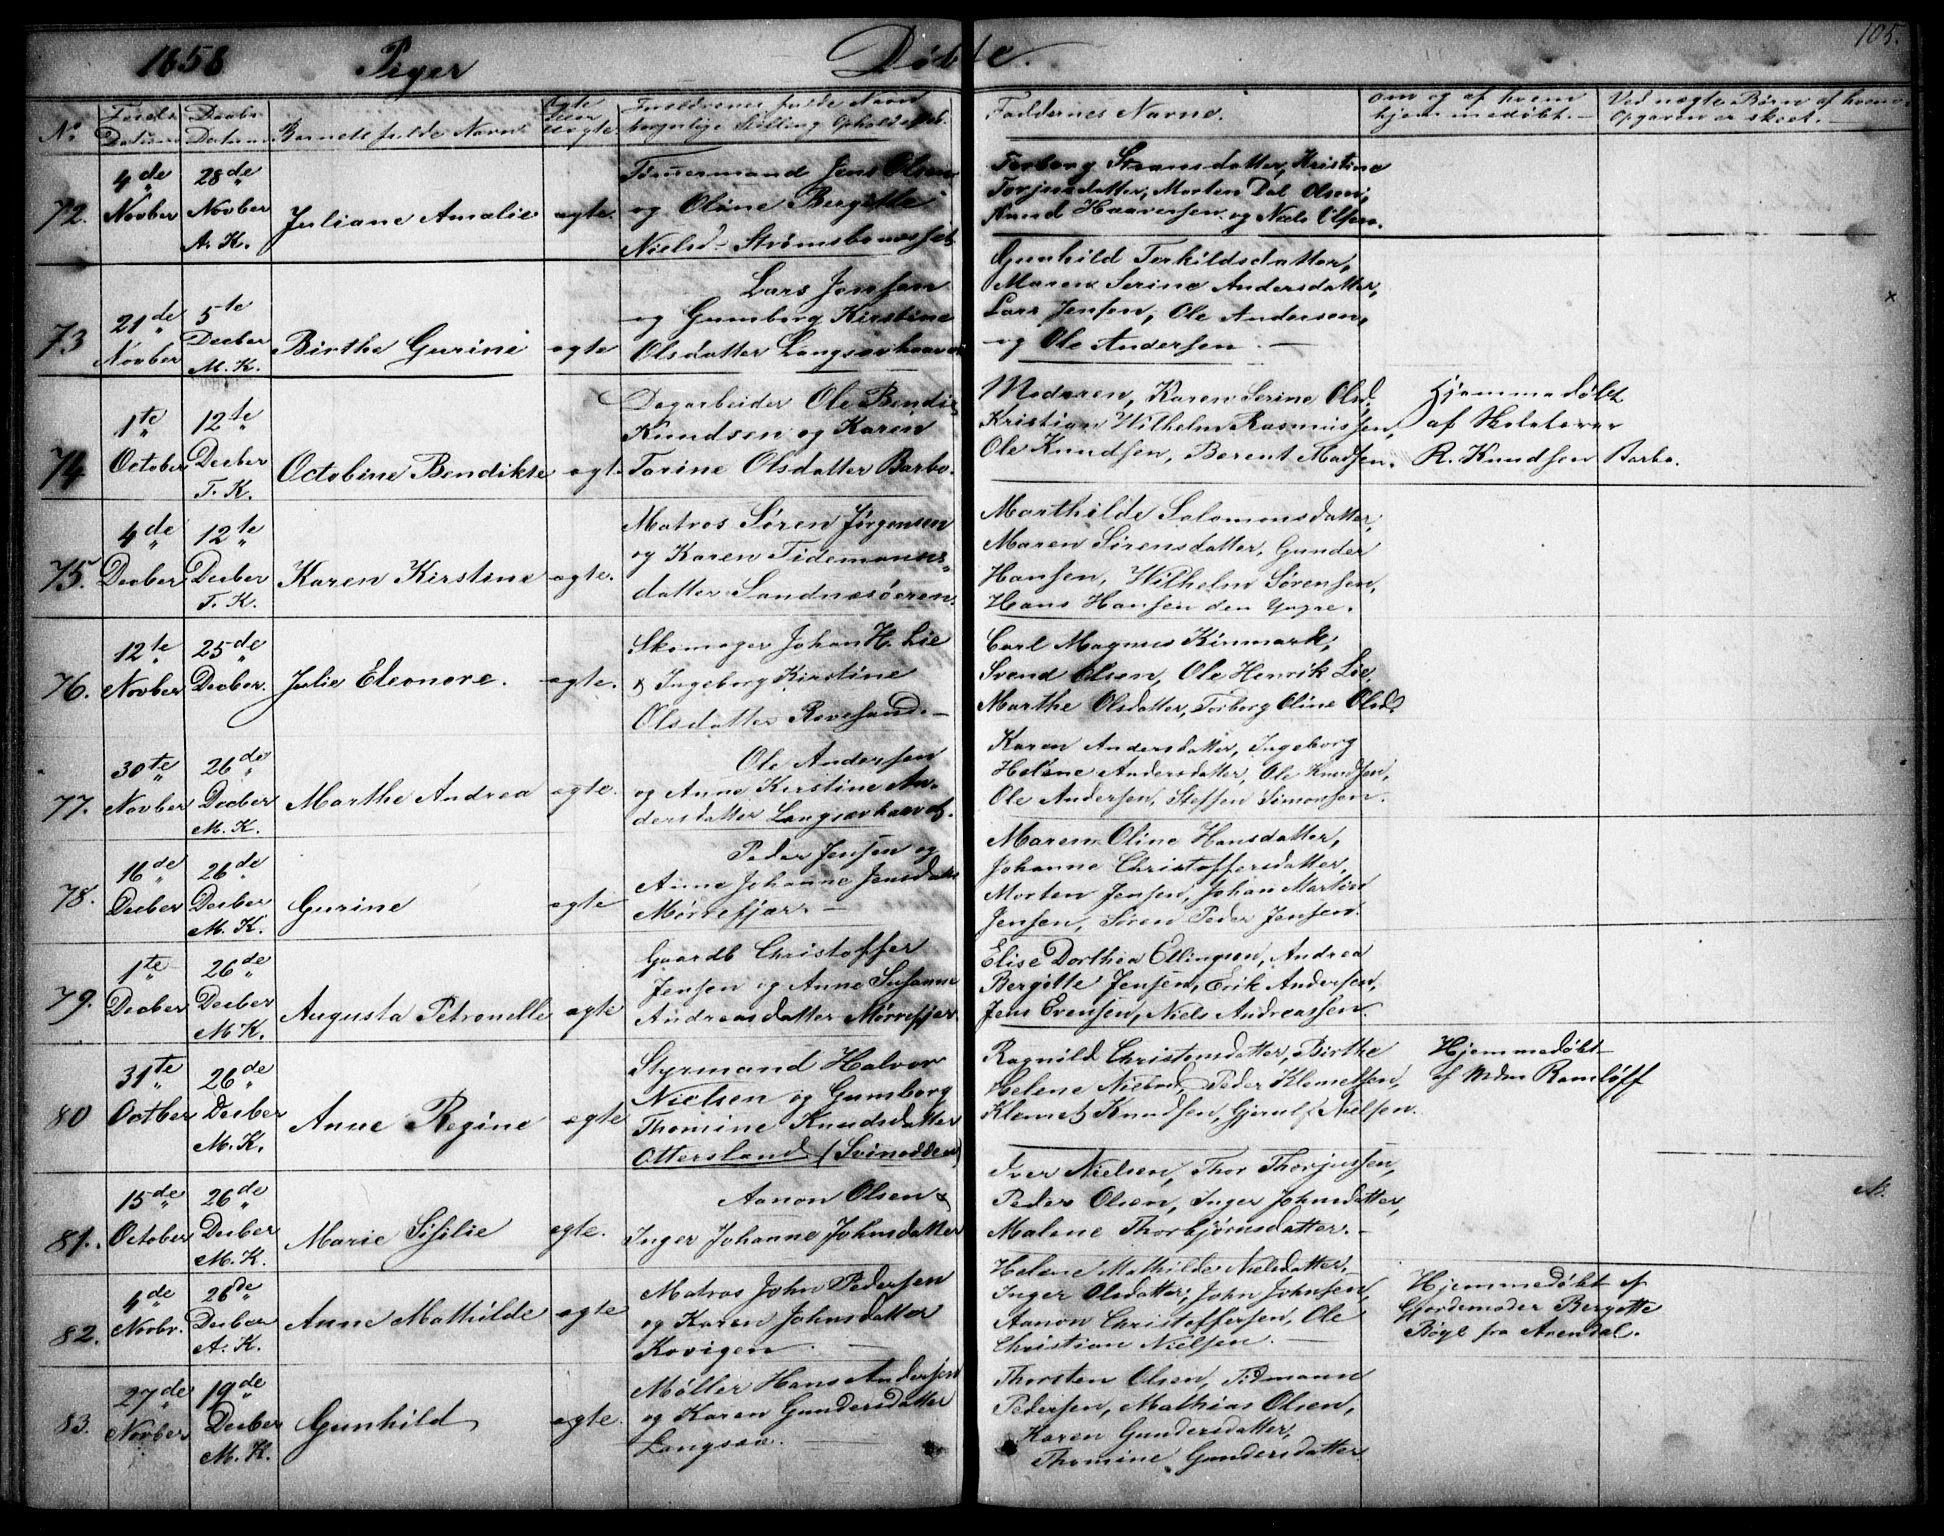 105.
1858 Piger Døbte.
No
Føds. Datum
Daabs Datum
Barnets fulde Navn
Ægte eller Uægte.
Forældrenes fulde Navn borgerlige Stilling Ophold
Faddernes Navne.
om og af hvem hjemmedøbt. —
Ved uægte Børn af hvem Opgaven er skeet. —
72.
4de Novber
28de Novber A. K.
Juliane Amalie
ægte.
Tømmermand Jens Olsen
og Oline Bergitte
Nielsd. Strømsbunæsset
Torborg Stramsdatter, Kristine
Torjusdatter, Morten Dal Olsen,
Knud Haaversen og Niels Olsen.
73
21de Novber
5te Decber M. K.
Birthe Gurine
ægte
Lars Jensen
og Gumborg Kirstine
Olsdatter Langsævhaaven
Gunhild Terkildsdatter,
Maren Serine Andersdatter,
Lars Jensen, Ole Andersen,
og Ole Andersen. —
74
1te October
12te Decber T. K.
Octobine Bendikte
ægt.
Dagarbeider Ole Bendix
Knudsen og Karen
Torine Olsdatter Barbo.
Moderen, Karen Serine Olsd.
Kristian Wilhelm Rasmussen,
Ole Knudsen, Berent Madsen.
Hjemmedøbt
af Skolelærer
R. Knudsen Barbo.
75.
4de Decber
12te Decber T. K.
Karen Kirstine
ægte.
Matros Søren Jørgensen
og Karen Tidemanns-
datter Sandnæsøeren.
Marthilde Salomonsdatter,
Maren Sørensdatter, Gunder
Hansen, Wilhelm Sørensen,
Hans Hansen den Yngre.
76.
12te Novber
25de Decber.
Julie Eleonore.
ægte.
Skomager Johan H. Lie
& Ingeborg Kirstine
Olsdatter Revesand. —
Carl Magnus Kinmark,
Svend Olsen, Ole Henrik Lie,
Marthe Olsdatter, Torborg Oline Olsd.
77.
30te Novber
26de Decber M. K.
Marthe Andrea
ægte.
Ole Andersen
og Anne Kirstine An-
dersdatter Langsævhaavet.
Karen Andersdatter, Ingeborg
Helene Andersdatter, Ole Knudsen,
Ole Andersen, Steffen Simonsen.
78.
16de Decber
26de Decber M. K.
Gurine
ægte
Peder Jensen og
Anne Johanne Jensdatter
Mørrefjær. —
Maren Oline Hansdatter,
Johanne Christoffersdatter,
Morten Jensen, Johan Martin
Jensen, Søren Peder Jensen.
79.
1te Decber
26de Decber M. K.
Augusta Petronelle
ægte
Gaardb Christoffer
Jensen og Anne Susanne
Andreasdatter Mørrefjær
Elise Dorthea Ellingsen, Andrea
Bergitte Jensen, Erik Andersen,
Jens Evensen, Niels Andreassen.
80
31te Octber
26de Decber M. K.
Anne Regine
ægte
Styrmand Halvor
Nielsen og Gumborg
Thomine Knudsdatter
Ottersland (Svinodden)
Ragnild Christensdatter, Birthe
Helene Nielsd, Peder Klemetsen,
Klemet Knudsen, Gjeruf Nielsen.
Hjemmedøbt
af Mdm Ramløff
81.
15de October
26de Decber M. K.
Marie Sisilie
ægte.
Aanon Olsen &
Inger Johanne Johnsdatter
Iver Nielsen, Thor Thorjussen,
Peder Olsen, Inger Johnsdatter,
Malene Thorbjørnsdatter. —
82.
4de Novbr.
26de Decber A. K.
Anne Mathilde
ægte
Matros John Pedersen
og Karen Johnsdatter
Kovigen. —
Helene Mathilde Nielsdatter,
Inger Olsdatter, John Johnsen,
Aanon Christoffersen, Ole
Christian Nielsen. —
Hjemmedøbt af
Gjordemoder Bergette
Bøye fra Arendal.
83.
27de Novber
19de Decber M. K.
Gunhild
ægte.
Møller Hans Andersen
og Karen Gundersdatter
Langsæ. —
Thorsten Olsen, Tidmann
Pedersen, Mathias Olsen,
Karen Gundersdatter,
Thomine Gundersdatter